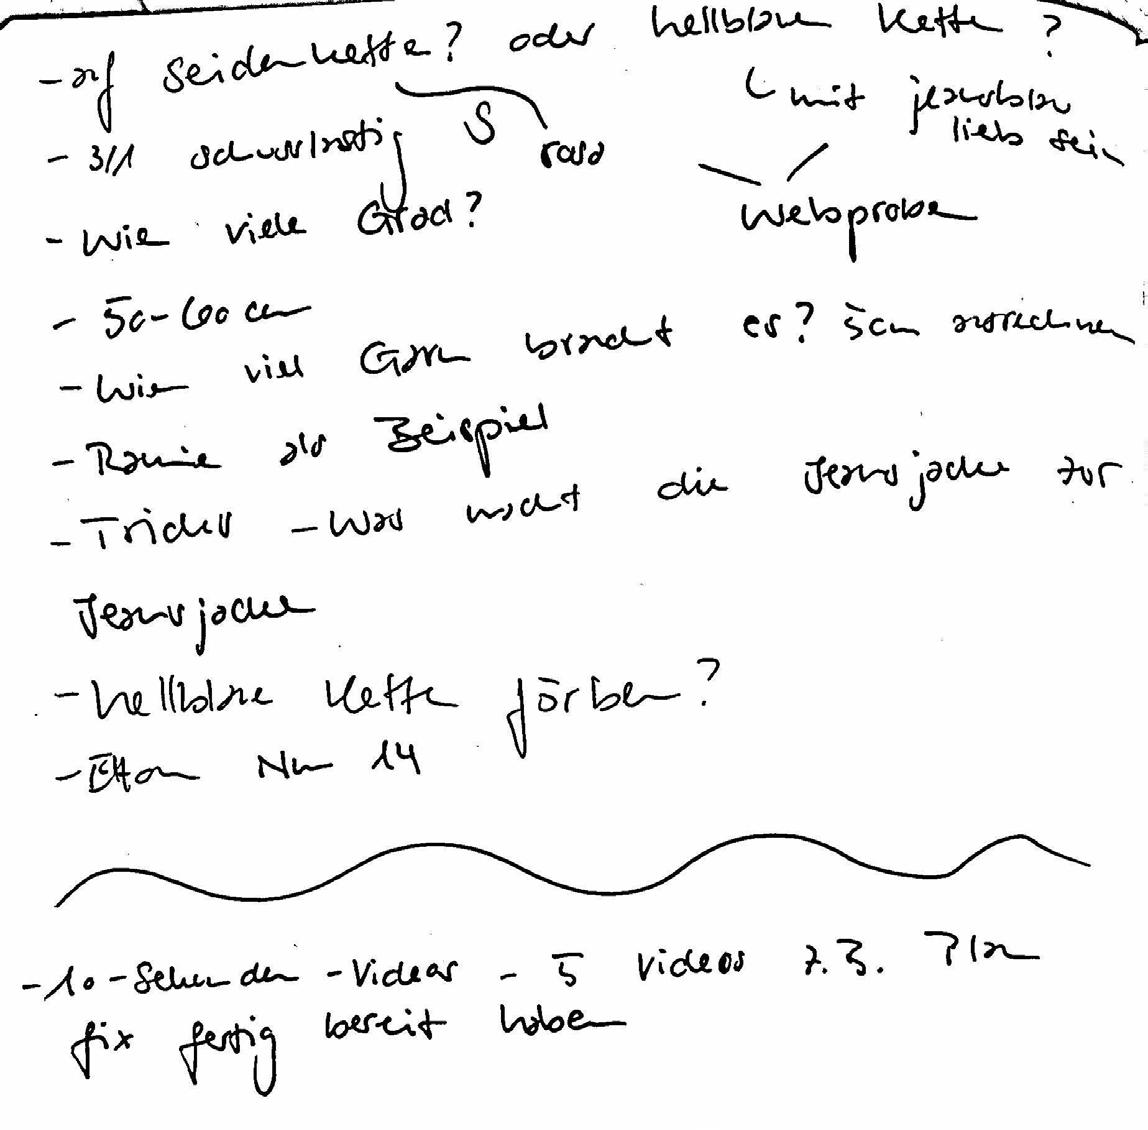 - auf Seidenkette? oder hellblaue Kette?
mit jeansblau
lieb sein
- 3/1 schusslastig S
- Wie viele Grad?
Webprobe
- 50-60 cm
- Wie viel Garn braucht es? 5cm ausrechnen
- Ramie als Beispiel
- Tricks - Was macht die Jeansjacke zur
Jeansjacke
- hellblaue Kette färben?
- Nm 14
- 10-Sekunden-Videos - 5 Videos z.B. Plan
fix fertig bereit haben